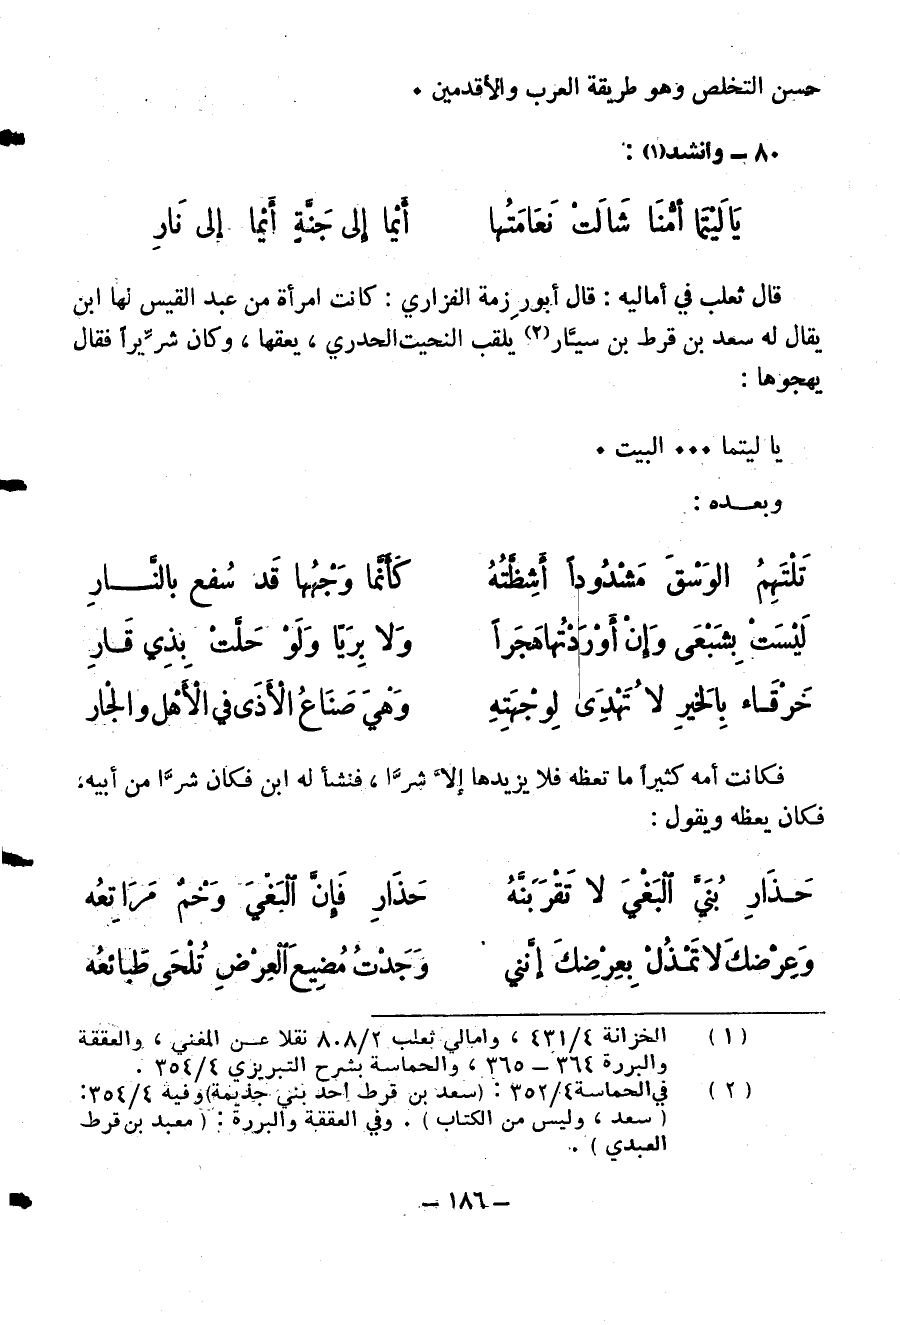 حسن التخلص وهو طريقة العرب والأقدمين .
٨٠ – وأنشد(١) :
يَا لَيْتَمَا أُمُّنَا شَالَتْ نَعَامَتُها أَيْمَا إلى جَنَّةٍ أَيْمَا إلى نَارِ
قال ثعلب في أماليه : قال أبور زمة الفزاري : كانت امرأة من عبد القيس لها ابن
يقال له سعد بن قرط بن سيَّار(٢) يلقب النحيت الحدري ، يعقها ، وكان شرِّيراً فقال
يهجوها :
يا ليتما ... البيت .
وبعـــده :
تَلْتَهِمُ الوَسْقَ مَشْدُوداً أَشِظَّتُهُ كَأَنَّمَا وَجْهُها قَد سُفع بالنَّـــارِ
لَيْسَتْ بِشَبْعَى وَإنْ أَوْرَدْتُها هَجَراً وَلا بِرَيَّا وَلَوْ حَلَّتْ بِذِي قَـارِ
خَرْقَـاء بِالخيرِ لاَ تُهْدَى لِوجْهَتِهِ وَهْيَ صَنَاعُ الْأَذَى في الْأَهْل والجْار
فكانت أمه كثيراً ما تعظه فلا يزيدها إلاَّ شرَّا ، فنشأ له ابن فكان شرَّا من أبيه،
فكان يعظه ويقول :
حَـذَارِ بُنَيَّ الْبَغْيَ لا تَقْرَبَنَّهُ حَذَارِ فَإنَّ الْبَغْيَ وَخْمٌ مَرَاتِعُه
وَعِرْضكَ لاَ تَمْذُلْ بِعِرْضِكَ إنَّني وَجَدْتُ مُضِيعَ الْعِرْضِ تُلْحَى طَبَائعُه
(١) الخزانة ٤٣١/٤ ، وامالي ثعلب ٨٠٨/٢ نقلا عــن المغني ، والعققة
والبررة ٣٦٤ – ٣٦٥ ، والحماسة بشرح التبريزي ٣٥٤/٤ .
(٢) في الحماسة ٣٥٢/٤ : (سعد بن قرط أحد بني جذيمة) وفيه ٣٥٤/٤:
( سعد ، وليس من الكتاب ) . وفي العققة والبررة : ( معبد بن قرط
العبدي ) .
– ١٨٦ –